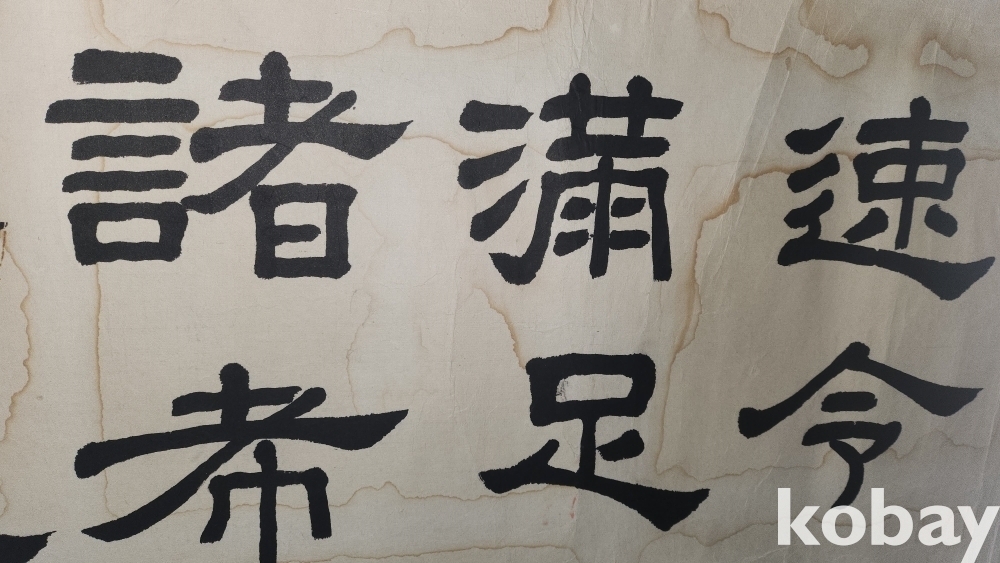 速令
滿足
諸希
kobay